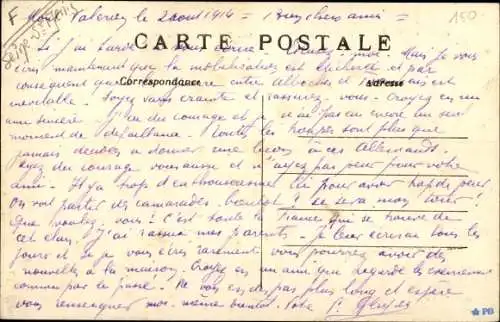 Mont Valérien le 2 août 1914 = Bien chers amis =
150
F
CARTE POSTALE
Correspondance
Adresse
Si j'ai tardé à vous écrire excusez-moi. Mais je vous
écris maintenant que la mobilisation est décrétée et par
conséquent que guerre entre alboches et français est
inévitable. Soyez sans crainte et rassurez-vous. Croyez en un
ami sincère j'ai du courage et je n'ai pas eu encore un seul
moment de défaillance. Toutes les troupes sont plus que
jamais décidées à donner une leçon à ces Allemands.
Ayez du courage vous aussi et n'ayez pas peur pour votre
ami. Il y a trop d'enthousiasme ici pour avoir peur.
On voit partir des camarades. bientôt ce sera mon tour!
Que voulez-vous! C'est toute la France qui se trouve de
cet élan. J'ai rassuré mes parents. Je leur écris tous les
jours et si je vous écris rarement vous pourrez avoir des
nouvelles à la maison. Croyez en un ami qui regarde les événements
comme par le passé. Ne vous en dis pas plus long et espère
vous renseigner moi-même bientôt. Votre
PB